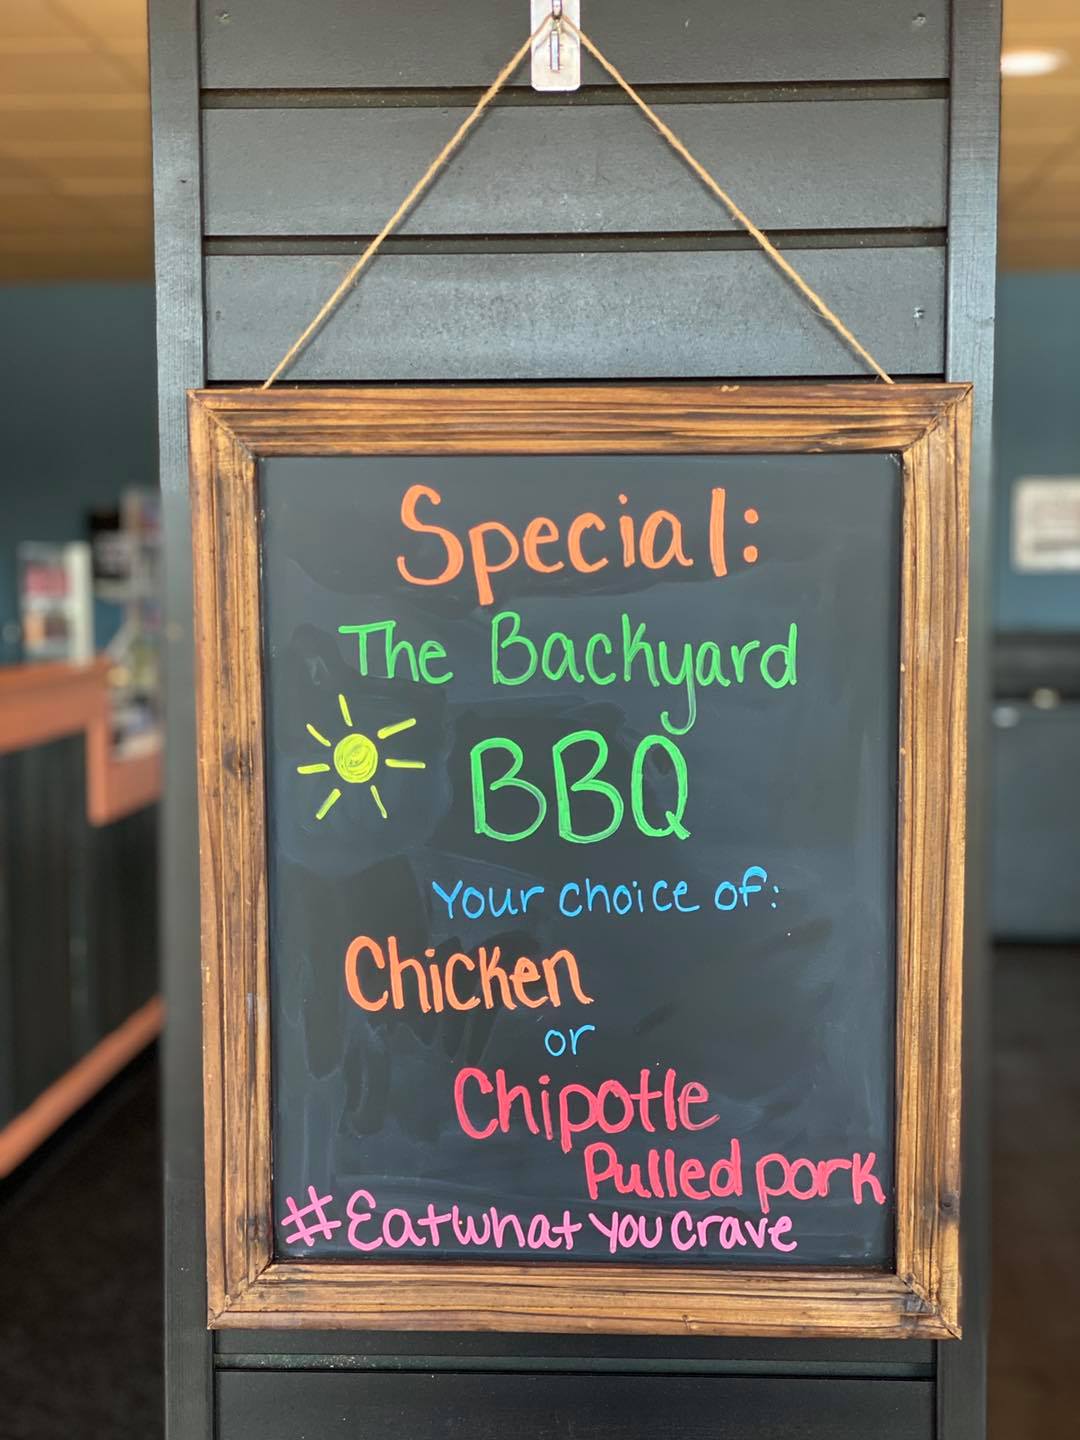 Special:
The Backyard
BBQ
Your choice of:
Chicken
or
Chipotle
Pulled pork
#Eatwhat you crave